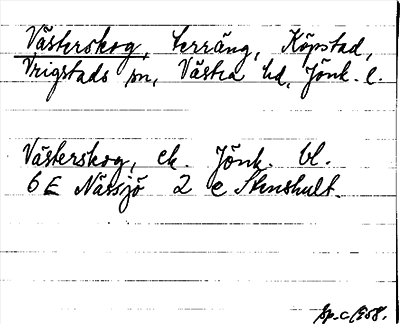 Västerskog, terräng, Köpstad,
Vrigstads sn, Västra hd, Jönk. l.
Västerskog, ek. Jönk. bl.
6 E Nässjö 2 e Stenshult.
Sp. c. 1958.